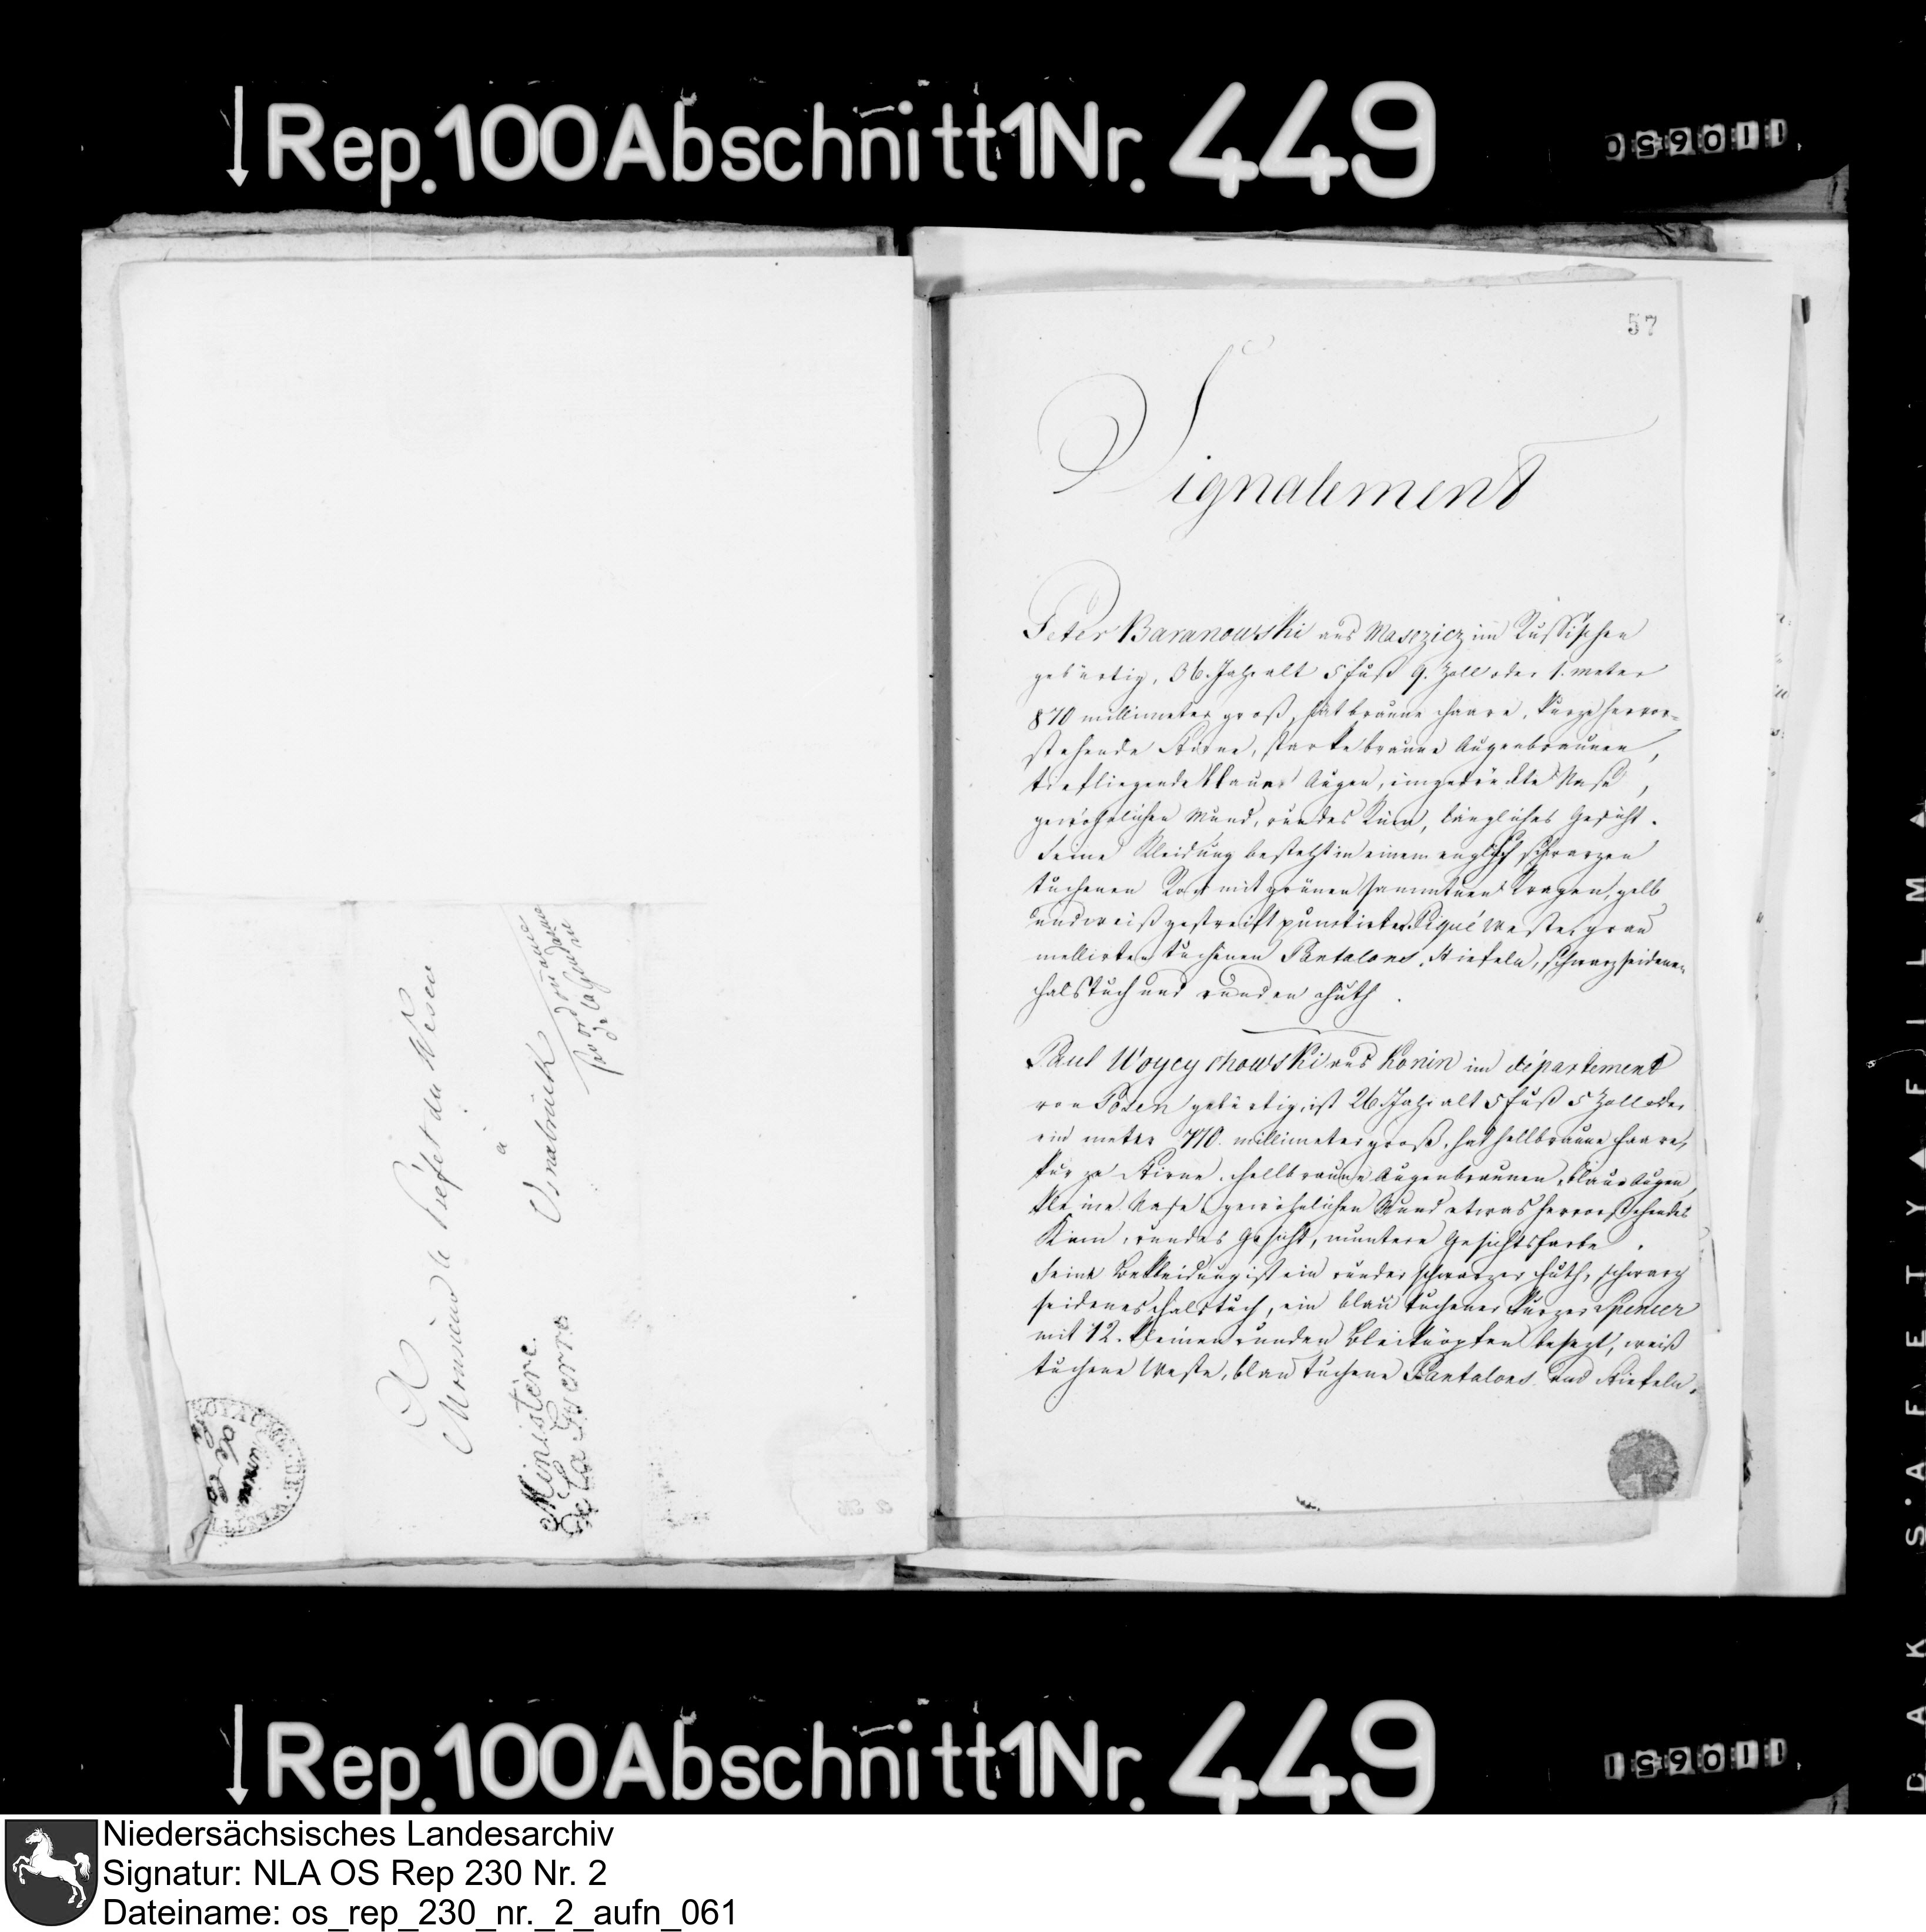 ↓Rep.100Abschnitt1Nr.449
110650
57
Signalement
Peter Baranowski aus Masczicz im Russischen
gebürtig, 36. Jahr alt 5 fuß 9. Zoll oder 1. meter
870 millimeter groß, hat braune Haare, kurze hervor=
stehende Stirne, starke braune Augenbraunen,
tiefliegende blaue Augen, eingedrückte Nase,
gewöhnlichen Mund, rundes Kinn, längliches Gesicht.
Seine Kleidung besteht in einem englisch schwarzen
tuchenen Rock mit grünen sammtnen Kragen, gelb
und weiß gestreift punctirter Piqué Weste, grau
mellirten tuchenen Pantalons, Stiefeln, schwarz seidenen
Halstuch und runden Huth.
Paul Woycychowski aus Konin im département
von Posen gebürtig, ist 26 Jahr alt 5 fuß 5 Zoll oder
ein meter 770. millimeter groß, hat hellbraune Haare,
kurze Stirne, hellbraune Augenbraunen, blaue Augen,
kleine Nase, gewöhnlichen Mund etwas hervorstehendes
Kinn, rundes Gesicht, muntere Gesichtsfarbe.
Seine Bekleidung ist ein runder schwarzer Huth, schwarz
seidenes Halstuch, ein blau tuchener kurzer Spencer
mit 12. kleinen runden Bleiknöpfen besezt, weiß
tuchene Weste, blau tuchene Pantalons und Stiefeln.
A
Monsieur le Préfet du Weser
à
Osnabrück
Ministère
De la Guerre
↓Rep.100Abschnitt1Nr.449
110651
DAK S.A.FETY▲FILM▲
Niedersächsisches Landesarchiv
Signatur: NLA OS Rep 230 Nr. 2
Dateiname: os_rep_230_nr._2_aufn_061